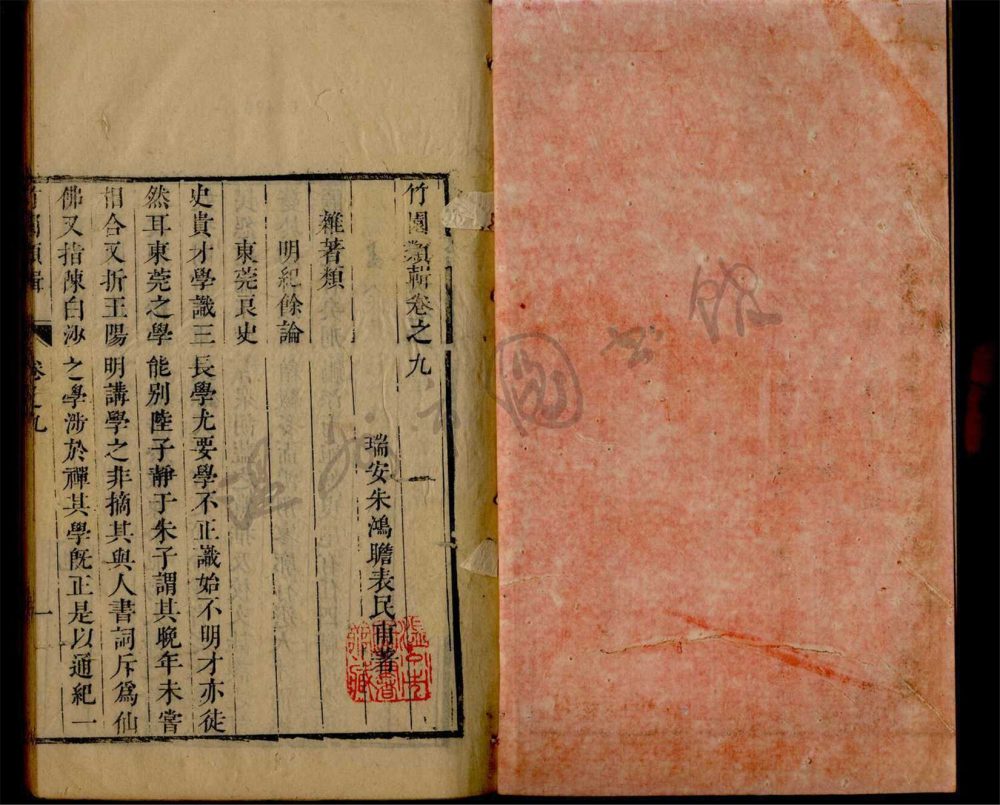 竹園類輯卷之九
瑞安朱鴻瞻表民甫著
雜著類
明紀餘論
東莞良史
史貴才學識三長學尤要學不正識始不明才亦徒
然耳東莞之學能别陸子靜于朱子謂其晚年未嘗
相合又折王陽明講學之非摘其與人書詞斥爲仙
佛又指陳白沙之學涉於禪其學旣正是以通紀一
竹園類輯
卷之九
一